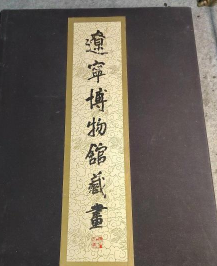 遼寧博物館藏畫